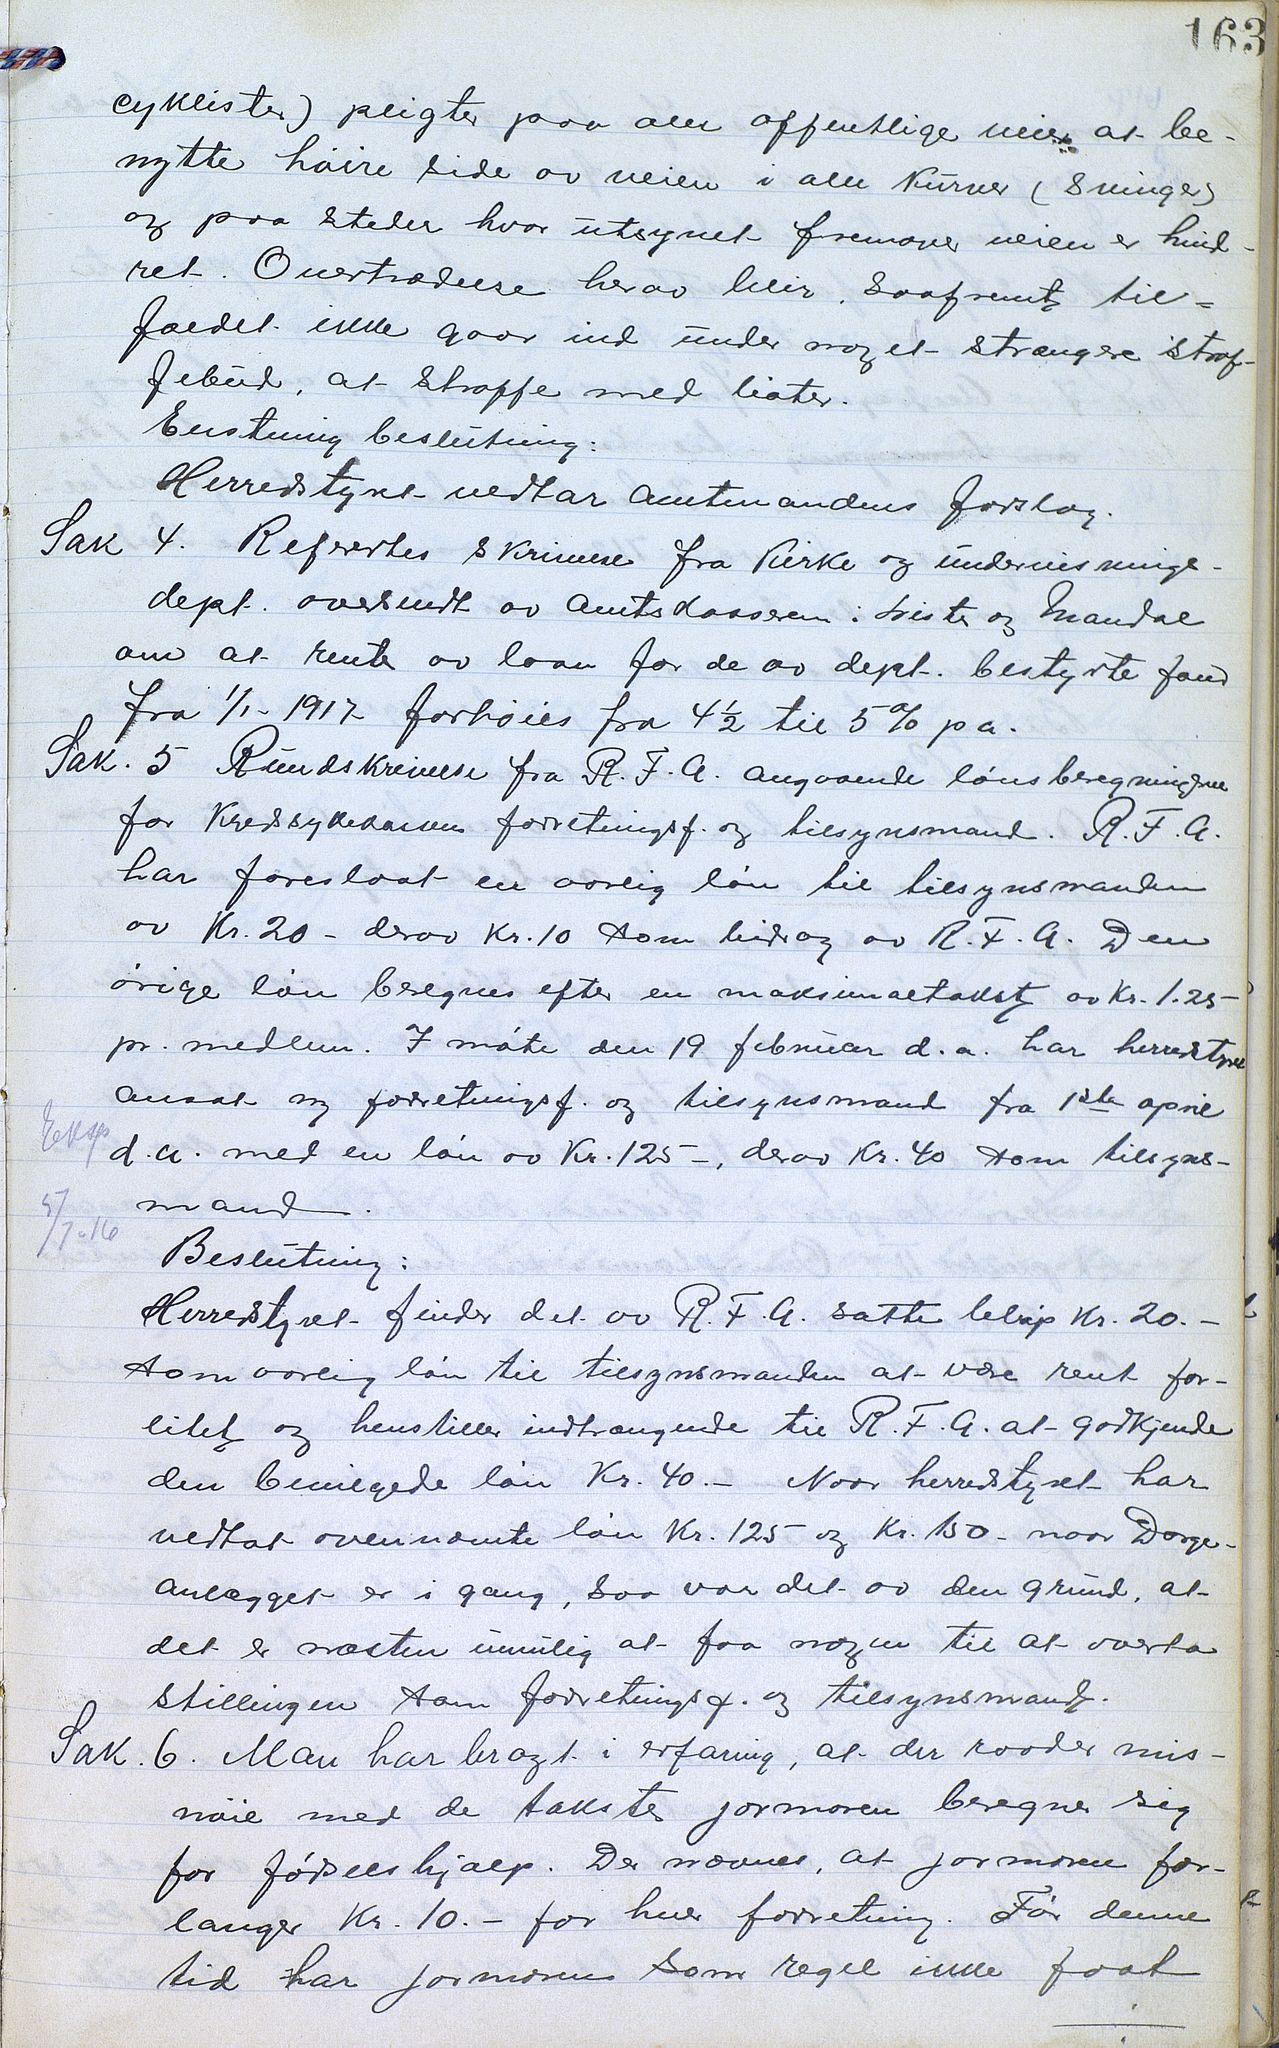 163
cyklister) pligter paa alle offentlige veier at be-
nytte höire side av veien i alle kurver (svinger)
og paa steder hvor utsynet fremover veien er hind-
ret. Overtrædelse herav blir, saafremt til-
fældet ikke gaar ind under noget strængere straf-
febud, at straffe med böter.
Enstemig beslutning:
Herredstyret vedtar amtmandens forslag.
Sak 4. Refertes skrivelse fra Kirke og undervisnings-
dept. oversendt av amtskassereren i Lister og Mandal
om at renten av laan for de av dept. bestyrte fond
fra 1/1-1917 forhöies fra 4½ til 5% pa.
Sak. 5 Rundskrivelse fra R.F.A. angaaende lönsberegningene
for kredssykekassens forretningsf. og tilsynsmand. R.F.A.
har foreslaat en aarlig lön til tilsynsmanden
av Kr. 20 - derav Kr. 10 som bidrag av R.F.A. Den
övrige lön beregnes efter en maksimaltakst av Kr. 1.25
pr. medlem. I möte den 19 februar d.a. har herredstyret
ansat ny forretningsf. og tilsynsmand fra 1ste april
d.a. med en lön av Kr. 125 -, derav Kr. 40 som tilsyns-
mand.
Eksp
5/7-16
Beslutning:
Herredstyret finder det av R.F.A. satte belöp Kr. 20. -
som aarlig lön til tilsynsmanden at være rent for-
litet og henstiller indtrængende til R.F.A. at godkjende
den bevilgede lön Kr. 40. - Naar herredstyret har
vedtat ovennævnte lön Kr. 125 og Kr. 150 - naar Dorge-
anlægget er i gang, saa var det av den grund, at
det er næsten umulig at faa nogen til at overta
stillingen som forretningsf. og tilsynsmand.
Sak. 6. Man har bragt i erfaring, at der raader mis-
nöie med de takster jormoren beregner sig
for födselshjælp. Der nævnes, at jormoren for-
langer Kr. 10. - for hver forretning. För denne
tid har jormoren som regel ikke faat